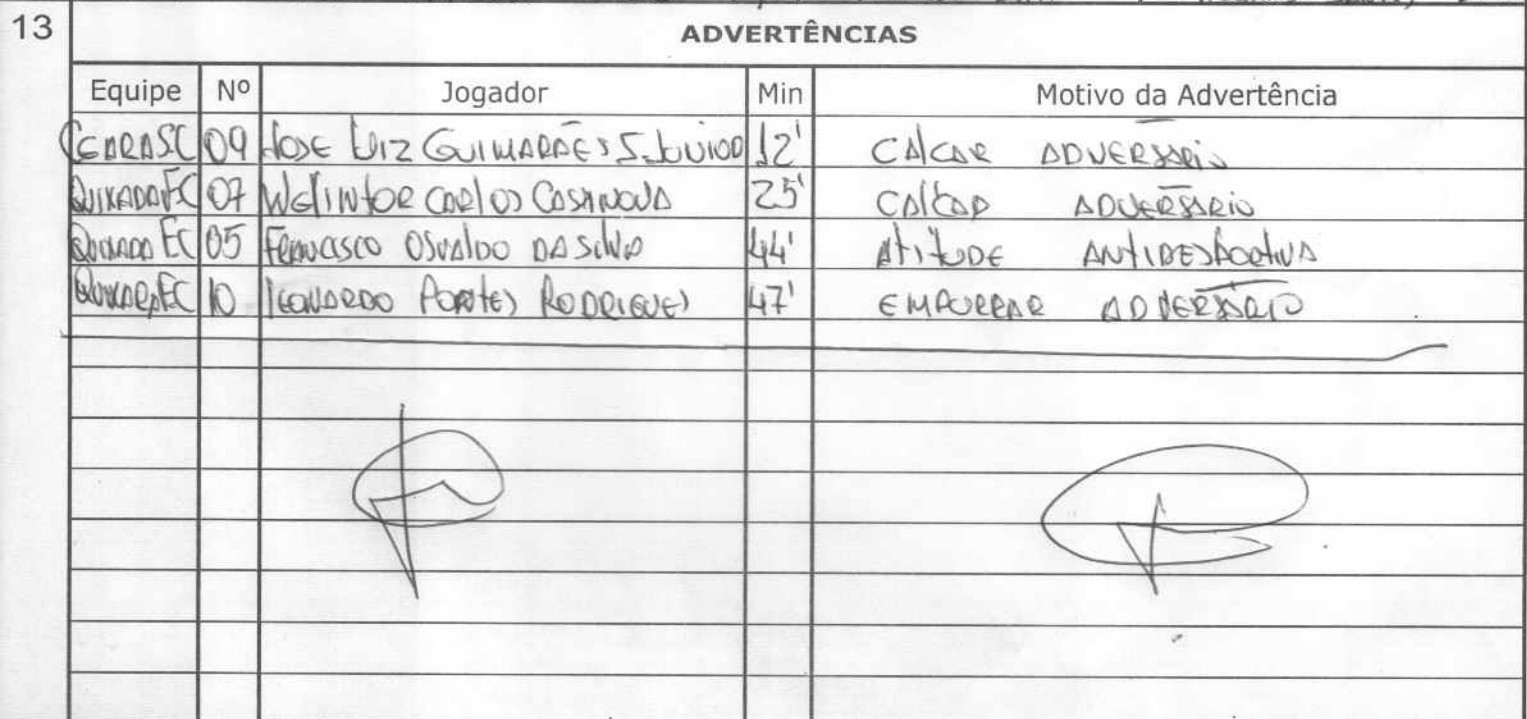 13
ADVERTÊNCIAS
Equipe Nº Jogador Min Motivo da Advertência
CEARA SC 09 JOSE LUIZ GUIMARÃES S. JUNIOR 12' CALÇAR ADVERSÁRIO
QUIXADA FC 07 WELINTOR CARLOS CASANOVA 25' CALÇAR ADVERSÁRIO
QUIXADA FC 05 FRANCISCO OSVALDO DA SILVA 44' ATITUDE ANTIDESPORTIVA
10 LEONARDO PONTES RODRIGUES 47' EMPURRAR ADVERSÁRIO